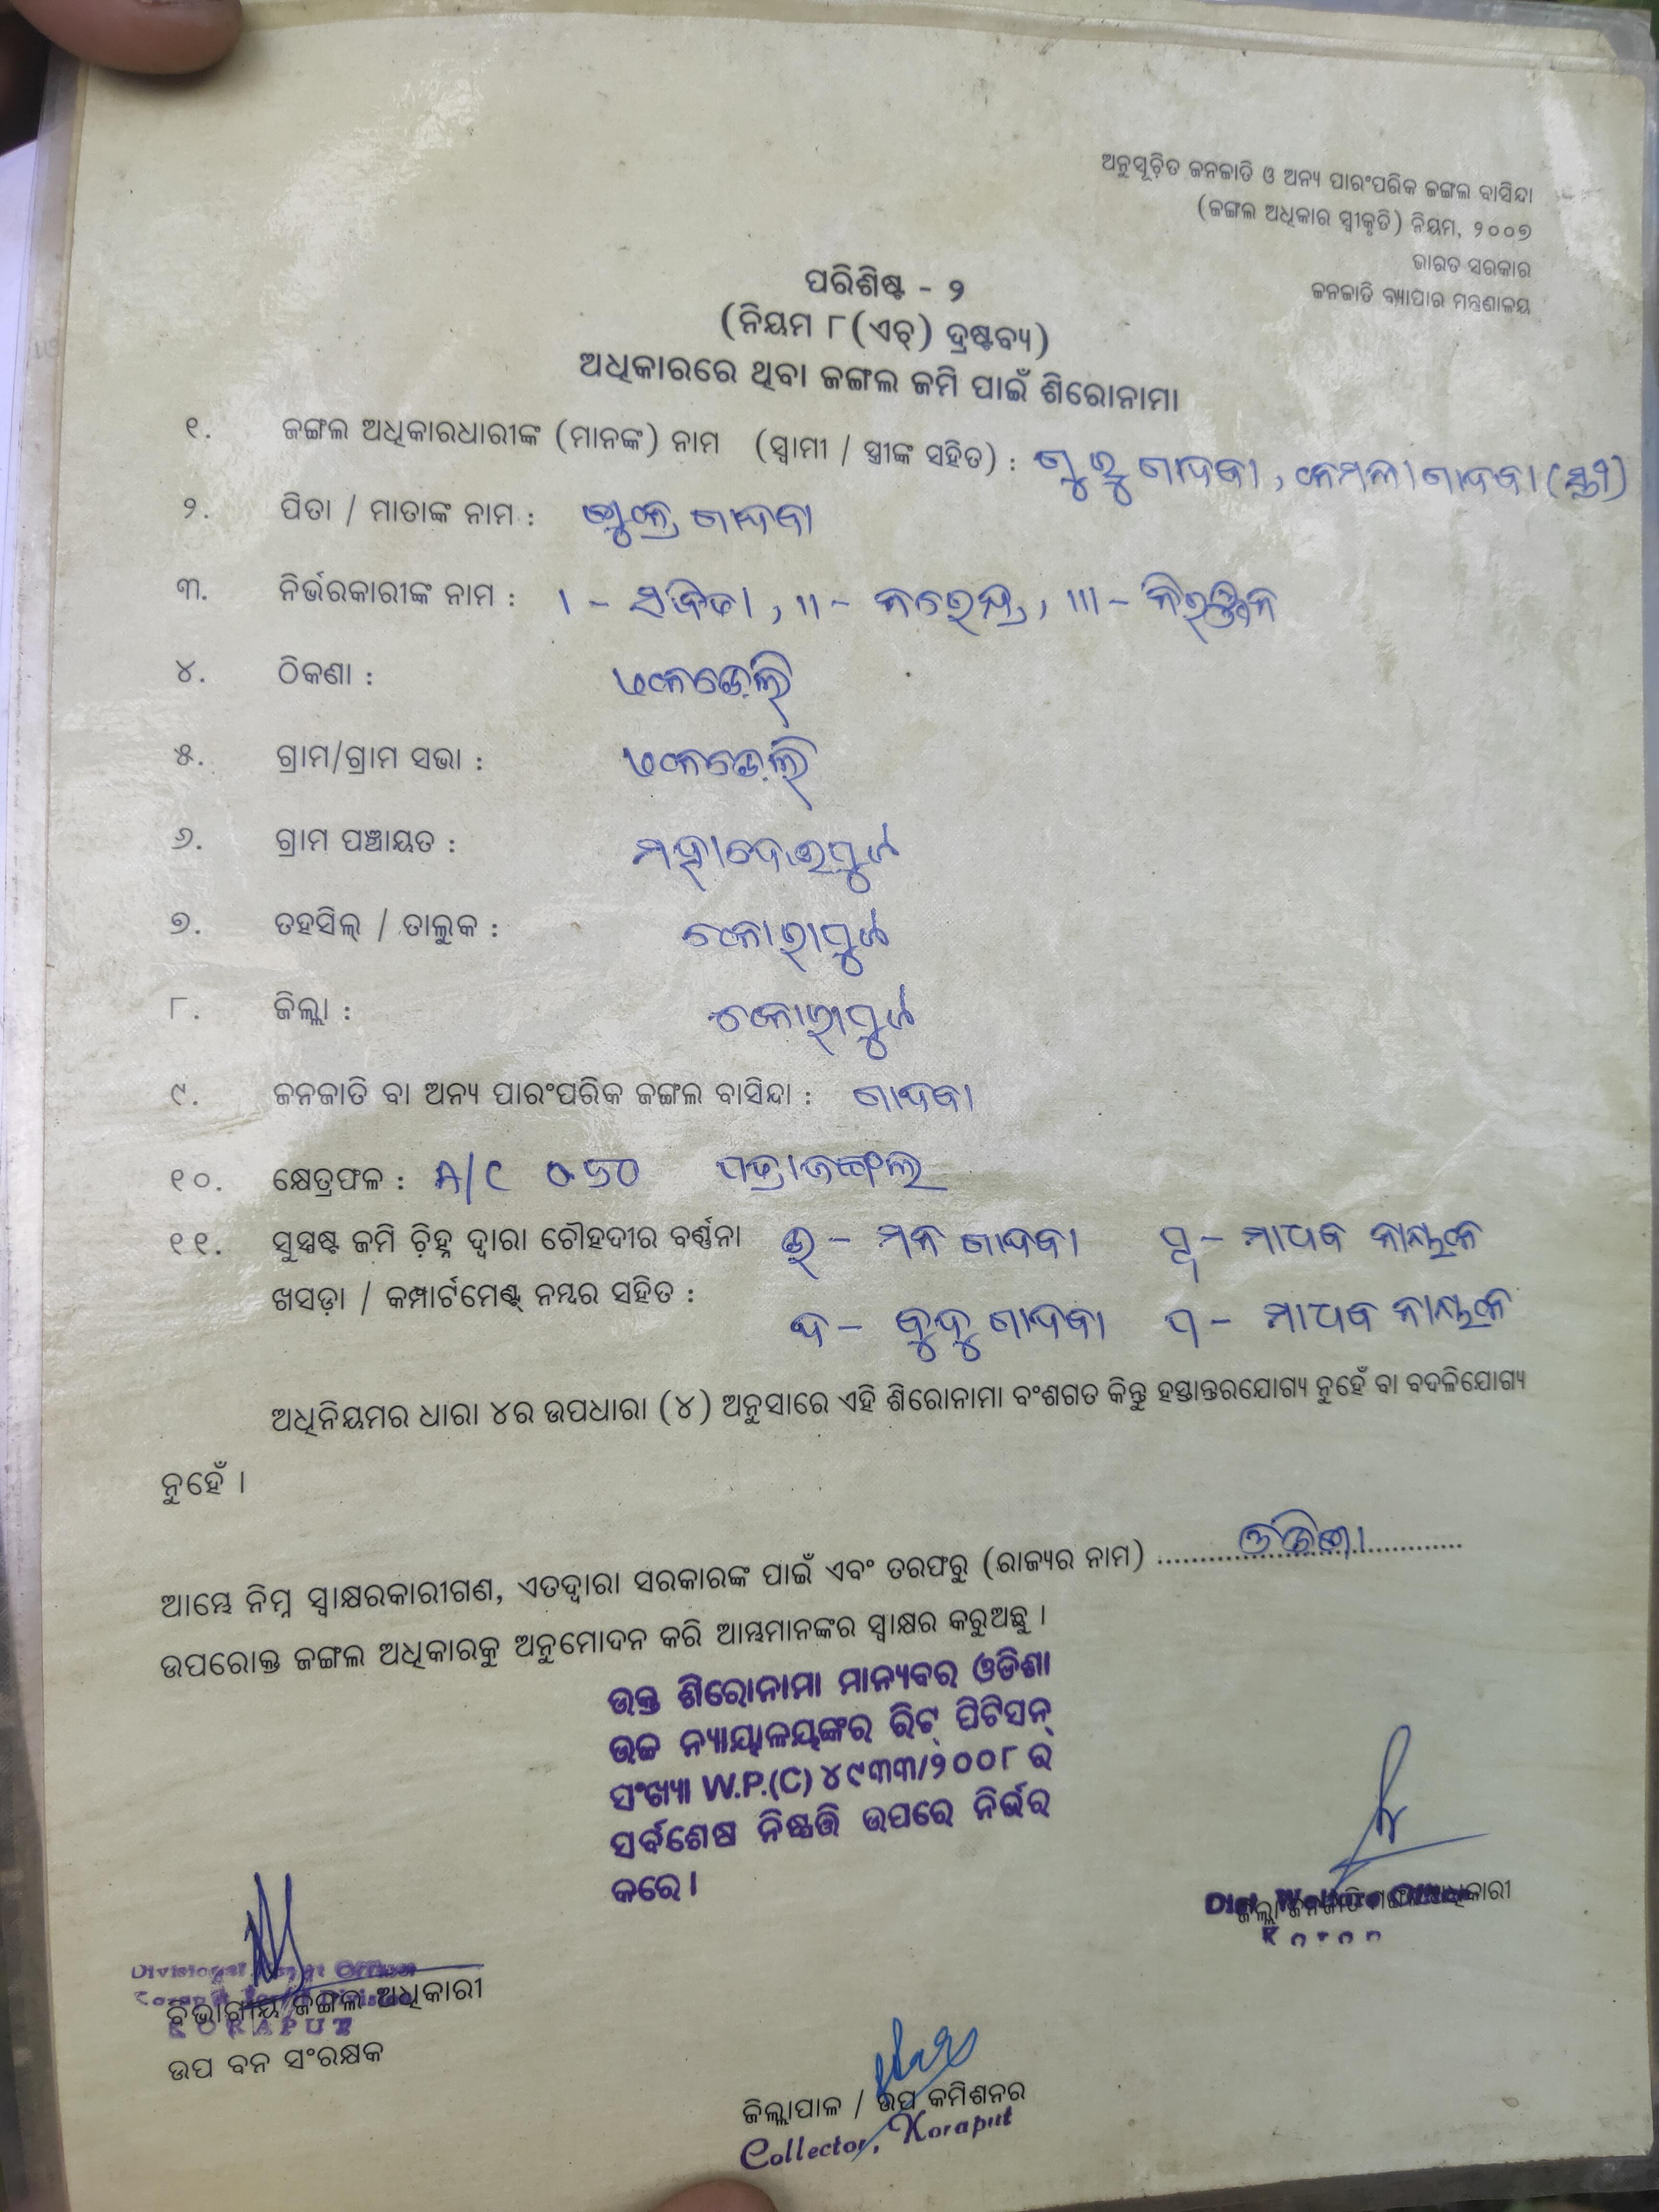 ଅନୁସୂଚିତ ଜନଜାତି ଓ ଅନ୍ୟ ପାରଂପରିକ ଜଙ୍ଗଲ ବାସିନ୍ଦା
(ଜଙ୍ଗଲ ଅଧିକାର ସ୍ୱୀକୃତି) ନିୟମ, ୨୦୦୭
ଭାରତ ସରକାର
ଜନଜାତି ବ୍ୟାପାର ମନ୍ତ୍ରଣାଳୟ
ପରିଶିଷ୍ଟ - ୨
(ନିୟମ ୮(ଏଚ୍) ଦ୍ରଷ୍ଟବ୍ୟ)
ଅଧିକାରରେ ଥିବା ଜଙ୍ଗଲ ଜମି ପାଇଁ ଶିରୋନାମା
୧. ଜଙ୍ଗଲ ଅଧିକାରଧାରୀଙ୍କ (ମାନଙ୍କ) ନାମ (ସ୍ୱାମୀ / ସ୍ତ୍ରୀଙ୍କ ସହିତ) : ଗୁରୁ ଗାଦବା, କମଳା ଗାଦବା (ସ୍ତ୍ରୀ)
୨. ପିତା / ମାତାଙ୍କ ନାମ : ଶୁକ୍ର ଗାଦବା
୩. ନିର୍ଭରକାରୀଙ୍କ ନାମ : ı - ସବିତା, ıı - ନରେନ୍ଦ୍ର, ııı -
୪. ଠିକଣା :
୫. ଗ୍ରାମ/ଗ୍ରାମ ସଭା :
୬. ଗ୍ରାମ ପଞ୍ଚାୟତ : ମହାଦେଇପୁଟ
୭. ତହସିଲ୍ / ତାଲୁକ : କୋରାପୁଟ
୮. ଜିଲ୍ଲା : କୋରାପୁଟ
୯. ଜନଜାତି ବା ଅନ୍ୟ ପାରଂପରିକ ଜଙ୍ଗଲ ବାସିନ୍ଦା : ଗାଦବା
୧୦. କ୍ଷେତ୍ରଫଳ : A/C 0.50 ପତ୍ରାଜଙ୍ଗଲ
୧୧. ସୁସ୍ପଷ୍ଟ ଜମି ଚିହ୍ନ ଦ୍ୱାରା ଚୌହଦୀର ବର୍ଣ୍ଣନା ଉ - ମନ ଗାଦବା ପୂ - ମାଧବ ନାୟକ
ଖସଡ଼ା / କମ୍ପାର୍ଟମେଣ୍ଟ୍ ନମ୍ବର ସହିତ : ଦ - ବୁଦୁ ଗାଦବା ପ - ମାଧବ ନାୟକ
ଅଧିନିୟମର ଧାରା ୪ର ଉପଧାରା (୪) ଅନୁସାରେ ଏହି ଶିରୋନାମା ବଂଶଗତ କିନ୍ତୁ ହସ୍ତାନ୍ତରଯୋଗ୍ୟ ନୁହେଁ ବା ବଦଳିଯୋଗ୍ୟ
ନୁହେଁ ।
ଆମ୍ଭେ ନିମ୍ନ ସ୍ୱାକ୍ଷରକାରୀଗଣ, ଏତଦ୍ୱାରା ସରକାରଙ୍କ ପାଇଁ ଏବଂ ତରଫରୁ (ରାଜ୍ୟର ନାମ) ଓଡିଶା
ଉପରୋକ୍ତ ଜଙ୍ଗଲ ଅଧିକାରକୁ ଅନୁମୋଦନ କରି ଆମ୍ଭମାନଙ୍କର ସ୍ୱାକ୍ଷର କରୁଅଛୁ ।
ଉକ୍ତ ଶିରୋନାମା ମାନ୍ୟବର ଓଡିଶା
ଉଚ୍ଚ ନ୍ୟାୟାଳୟଙ୍କର ରିଟ୍ ପିଟିସନ୍
ସଂଖ୍ୟା W.P.(C) ୪୯୩୩/୨୦୦୮ ର
ସର୍ବଶେଷ ନିଷ୍ପତ୍ତି ଉପରେ ନିର୍ଭର
କରେ।
ଜିଲ୍ଲା ଜନଜାତି ମଙ୍ଗଳ ଅଧିକାରୀ
Dist. Welfare Officer
Divisional Forest Officer
Koraput Forest Division
KORAPUT
ବିଭାଗୀୟ ଜଙ୍ଗଲ ଅଧିକାରୀ
ଉପ ବନ ସଂରକ୍ଷକ
ଜିଲ୍ଲାପାଳ / ଉପ କମିଶନର
Collector, Koraput